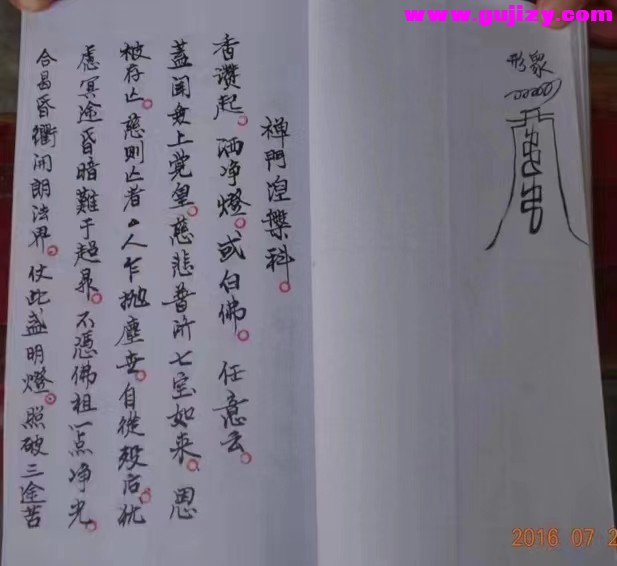 www.gujizy.com
禅門湼槃科。
香讚起。洒净燈。或白佛。任意云。
蓋闻無上觉皇。慈悲普济七宝如来。恩
被存亡。慈则亡者厶人乍抛塵世。自從殁后。犹
慮冥途昏暗難于超昇。不憑佛祖一点净光。
合昌昏衢開朗法界。仗此盏明燈。照破三途苦
2016 07 2